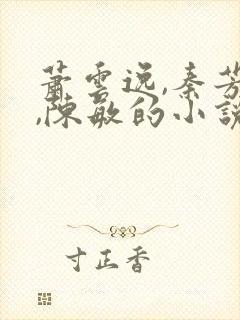 萧云逸,秦芳
,陈敏的小说
寸正香